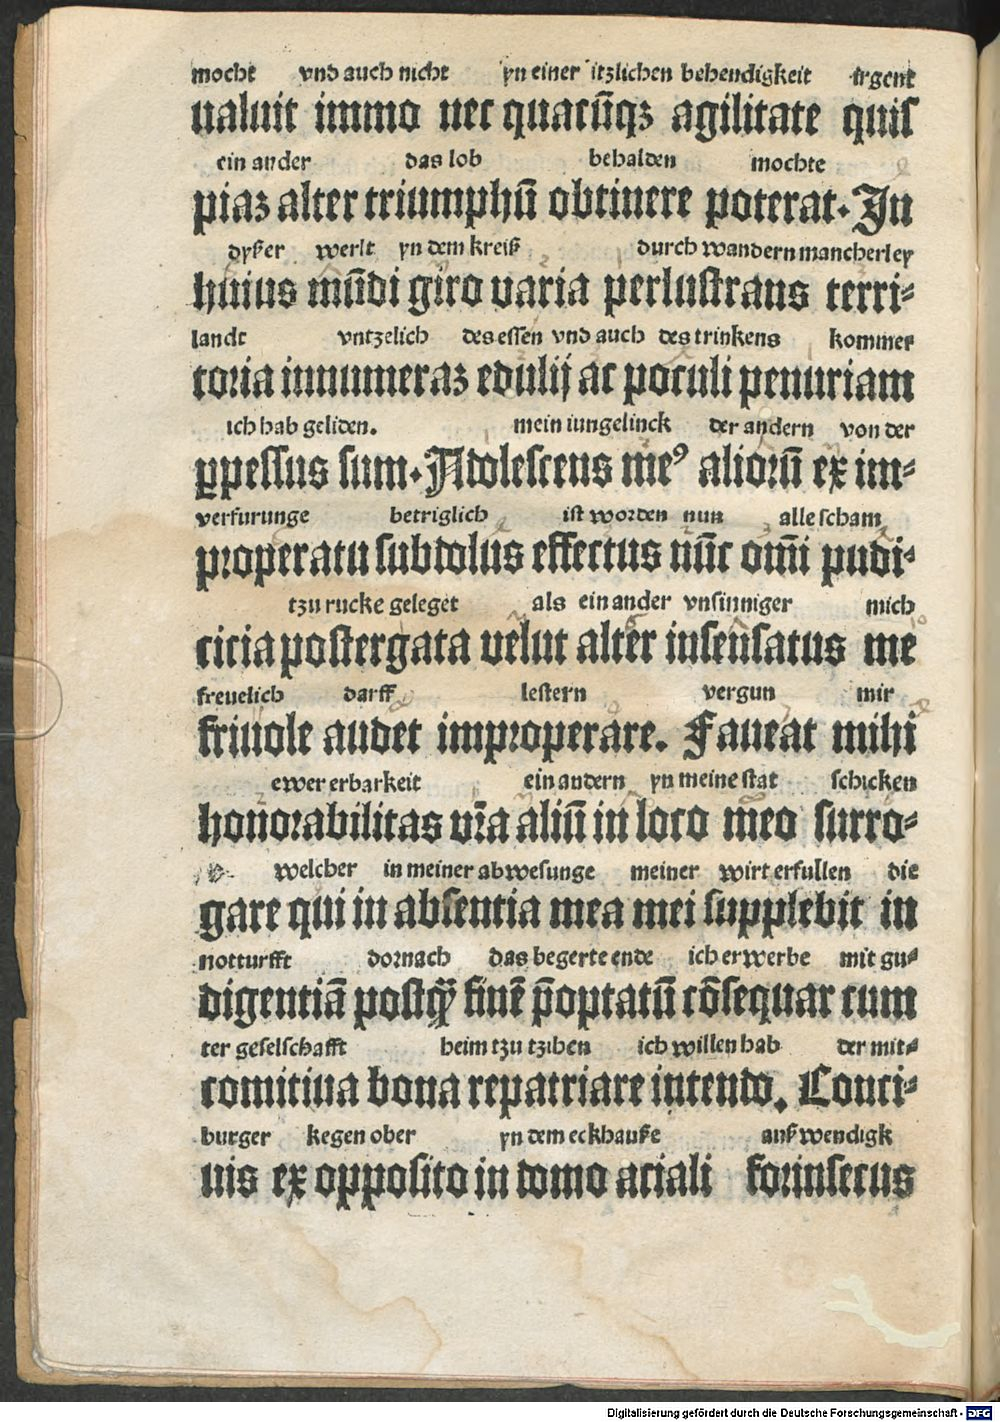 mocht vnd auch nicht yn einer itzlichen behendigkeit irgent
ualuit immo nec quacūqꝫ agilitate quiſ
ein ander das lob behalden mochte
piaꝫ alter triumphū obtinere poterat. In
dyßer werlt yn dem kreiß durch wandern mancherley
huius mūdi giro varia perluſtrans terri⸗
landt vntzelich des eſſen vnd auch des trinkens kommer
toꝛia innumeraꝫ edulij ac poculi penuriam
ich hab geliden. mein iungelinck der andern von der
ꝑpeſſus ſum. Adoleſcens meꝰ alioꝛū ex im⸗
verfurunge betriglich iſt worden nun alle ſcham
pꝛoperatu ſubdolus effectus nūc om̄i pudi⸗
tzu rucke geleget als ein ander vnſinniger mich
cicia poſtergata velut alter inſenſatus me
freuelich darff leſtern vergun mir
friuole audet impꝛoperare. Faueat mihi
ewer erbarkeit ein andern yn meine ſtat ſchicken
honoꝛabilitas vꝛ̄a aliū in loco meo ſurro⸗
welcher in meiner abweſunge meiner wirt erfullen die
gare qui in abſentia mea mei ſupplebit in
notturfft doꝛnach das begerte ende ich erwerbe mit gu⸗
digentiā poſtꝙ̄ finē p̄optatū cōſequar cum
ter geſelſchafft heim tzu tziben ich willen hab der mit⸗
comitiua bona repatriare intendo. Conci⸗
burger kegen ober yn dem eckhauße außwendigk
uis ex oppoſito in domo aciali foꝛinſecus
Digitalisierung gefördert durch die Deutsche Forschungsgemeinschaft - DFG